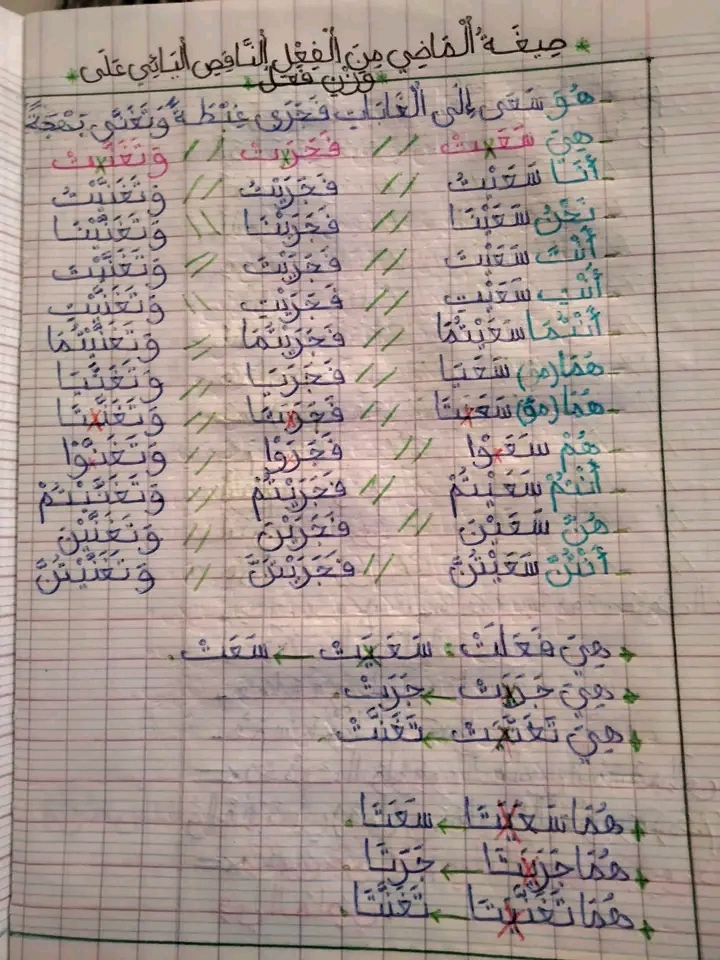 * صِيغَةُ الْمَاضِي مِنَ الْفِعْلِ النَّاقِصِ الْيَائِي عَلَى *
* وَزْنِ فَعَلَ *
- هُوَ سَعَى إِلَى الْغَابَاتِ فَجَرَى غِبْطَةً وَتَغَنَّى بَهْجَةً
- هِيَ سَعَيَتْ // فَجَرَيَتْ // وَتَغَنَّيَتْ
- أَنَا سَعَيْتُ // فَجَرَيْتُ // وَتَغَنَّيْتُ
- نَحْنُ سَعَيْنَا // فَجَرَيْنَا \\ وَتَغَنَّيْنَا
- أَنْتَ سَعَيْتَ // فَجَرَيْتَ // وَتَغَنَّيْتَ
- أَنْتِ سَعَيْتِ // فَجَرَيْتِ \\ وَتَغَنَّيْتِ
- أَنْتُمَا سَعَيْتُمَا // فَجَرَيْتُمَا // وَتَغَنَّيْتُمَا
- هُمَا (مذ) سَعَيَا // فَجَرَيَا // وَتَغَنَّيَا
- هُمَا (مؤ) سَعَيَتَا // فَجَرَيَتَا // وَتَغَنَّيَتَا
- هُمْ سَعَيْوْا // فَجَرَوْا // وَتَغَنَّوْا
- أَنْتُمْ سَعَيْتُمْ // فَجَرَيْتُمْ // وَتَغَنَّيْتُمْ
- هُنَّ سَعَيْنَ // فَجَرَيْنَ // وَتَغَنَّيْنَ
- أَنْتُنَّ سَعَيْتُنَّ // فَجَرَيْتُنَّ // وَتَغَنَّيْتُنَّ
+ هِيَ فَعَلَتْ: سَعَيَتْ ← سَعَتْ.
+ هِيَ جَرَيَتْ ← جَرَتْ.
+ هِيَ تَغَنَّيَتْ ← تَغَنَّتْ.
+ هُمَا سَعَيَتَا ← سَعَتَا.
+ هُمَا جَرَيَتَا ← جَرَتَا.
+ هُمَا تَغَنَّيَتَا ← تَغَنَّتَا.